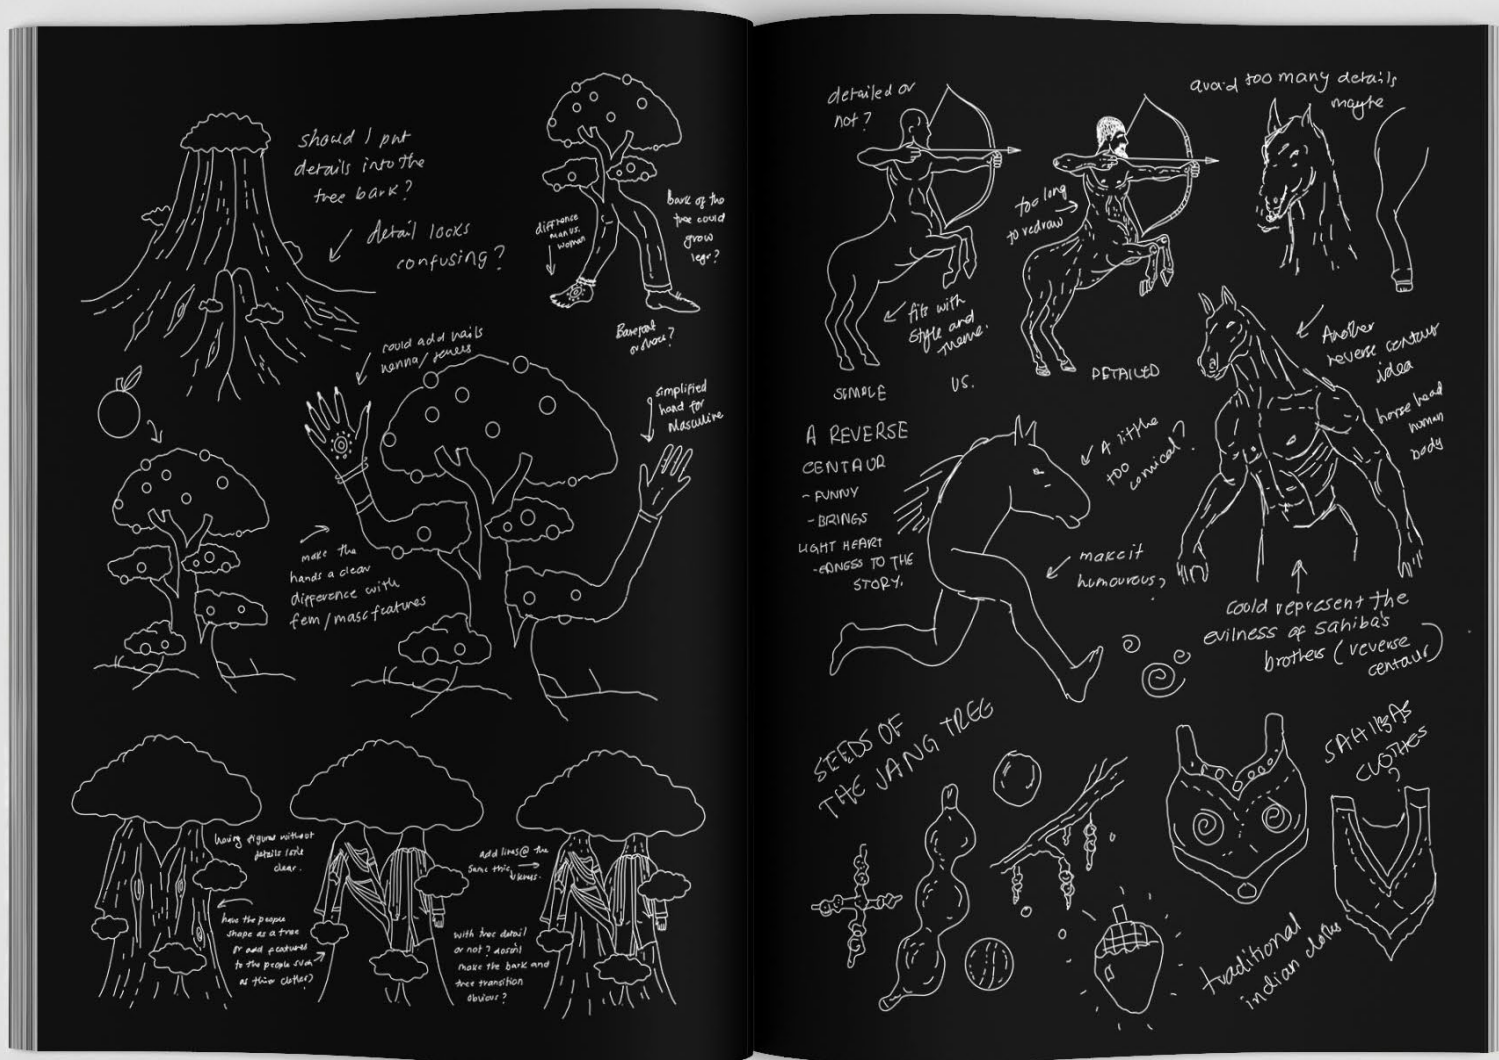 should I put
details into the
tree bark?
detail looks
confusing?
difference
man vs.
woman
bark of the
tree could
grow
legs?
Barefoot
or shoes?
could add nails
henna/jewels
simplified
hand for
Masculine
make the
hands a clear
difference with
fem/masc features
having figures without
details look
clear.
have the people
shape as a tree
or add features
to the people such
as their clothes?
add lines @ the
same thickness.
with tree detail
or not? doesn't
make the bark and
tree transition
obvious?
detailed or
not?
too long
to redraw
avoid too many details
maybe
fits with
style and
theme.
SIMPLE
VS.
DETAILED
Another
reverse centaur
idea
horse head
human
body
A REVERSE
CENTAUR
- FUNNY
- BRINGS
LIGHT HEART
-EDNESS TO THE
STORY.
A little
too comical?
make it
humourous?
could represent the
evilness of Sahiba's
brothers (reverse
centaur)
SEEDS OF
THE JANG TREE
SAHIBAS
CLOTHES
?
traditional
indian clothes